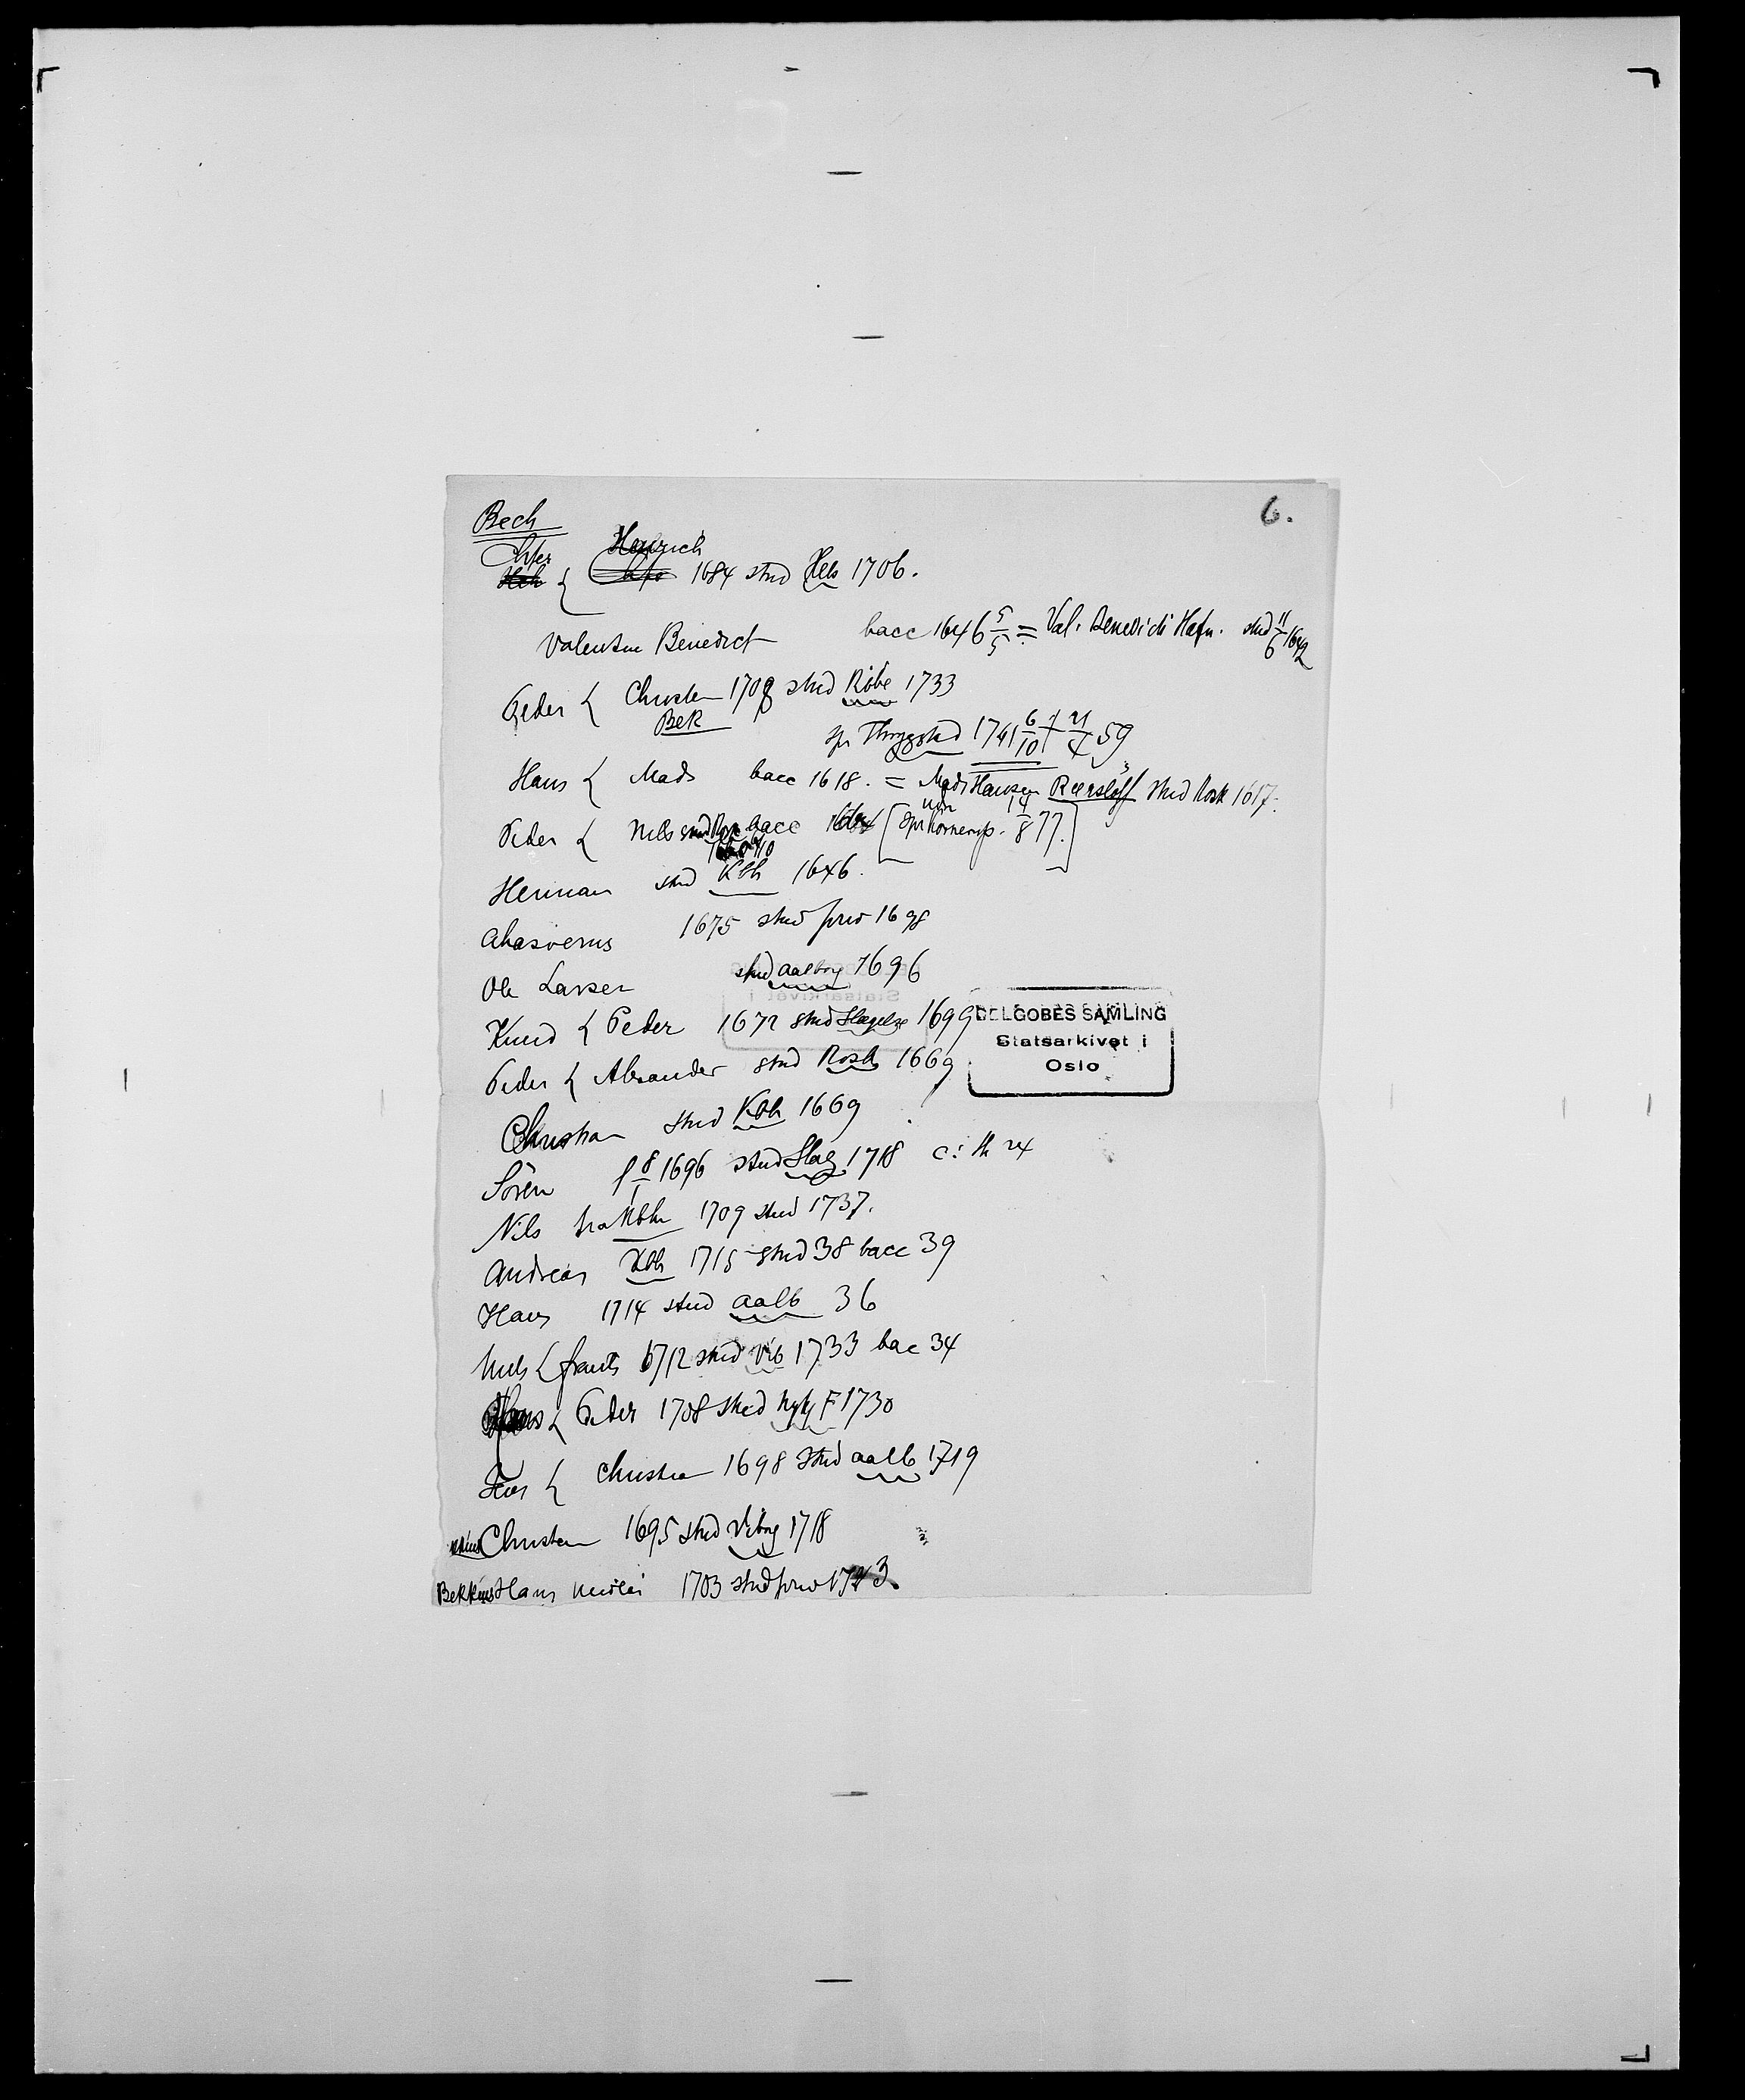 Bech 6.
Chfer { Henrich 1684 stud Hels 1706.
Valentin Benedict bacc 1646 5/5 = Val. Benedicti Hafn. stud 11/6 1642
Peder { Christen 1708 stud Ribe 1733
Bek
sp Thyggstad 1741 6/10 † 21/4 59
Hans { Mads bacc 1618. = Mads Hansen Reersløff stud Rosk 1617.
Peder { Nils stud bacc [spr Kornerup. 14/8 77.]
Herman stud Kbh 1646.
Ahasverus 1675 stud priv 1698
Ole Larsen stud Aalborg 1696
Knud { Peder 1672 stud Slagelse 1699
DELGOBES SAMLING
Statsarkivet i
Oslo
Peder { Alexander stud Rosk 1669
Christian stud Kbh 1669
Sören f 8/1 1696 stud Slag 1718 c: th 24
Nils fra Kbhn 1709 stud 1737.
Andreas Kbh 1715 stud 38 bacc 39
Hans 1714 stud Aalb 36
Niels { frants 1712 stud Vib 1733 bac 34
Hans { Peder 1708 stud Nykj F 1730
Iver { Christian 1698 stud Aalb 1719
Christen 1695 stud Viborg 1718
Bekkius Hans Nicolai 1703 stud priv 1723.